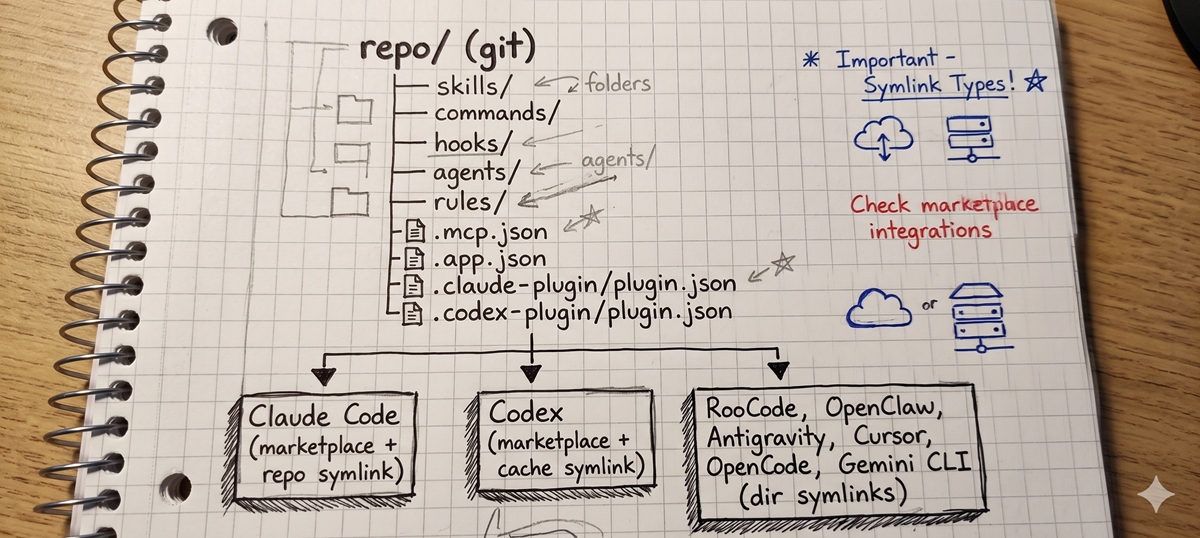 repo/ (git)
skills/
folders
commands/
hooks/
agents/
agents/
rules/
.mcp.json
.app.json
.claude-plugin/plugin.json
.codex-plugin/plugin.json
* Important -
Symlink Types!
Check marketplace
integrations
or
Claude Code
(marketplace +
repo symlink)
Codex
(marketplace +
cache symlink)
RooCode, OpenClaw,
Antigravity, Cursor,
OpenCode, Gemini CLI
(dir symlinks)